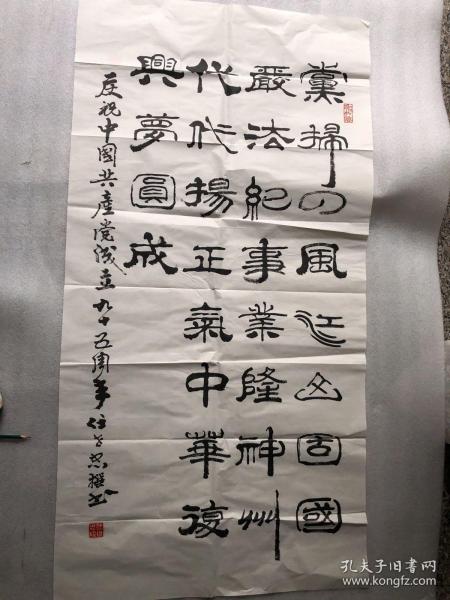 黨掃四風江山固國
嚴法紀事業隆神州
代代揚正氣中華復
興夢圓成
庆祝中國共產党成立九十五周年 任忠撰书
孔夫子旧书网
www.kongfz.com